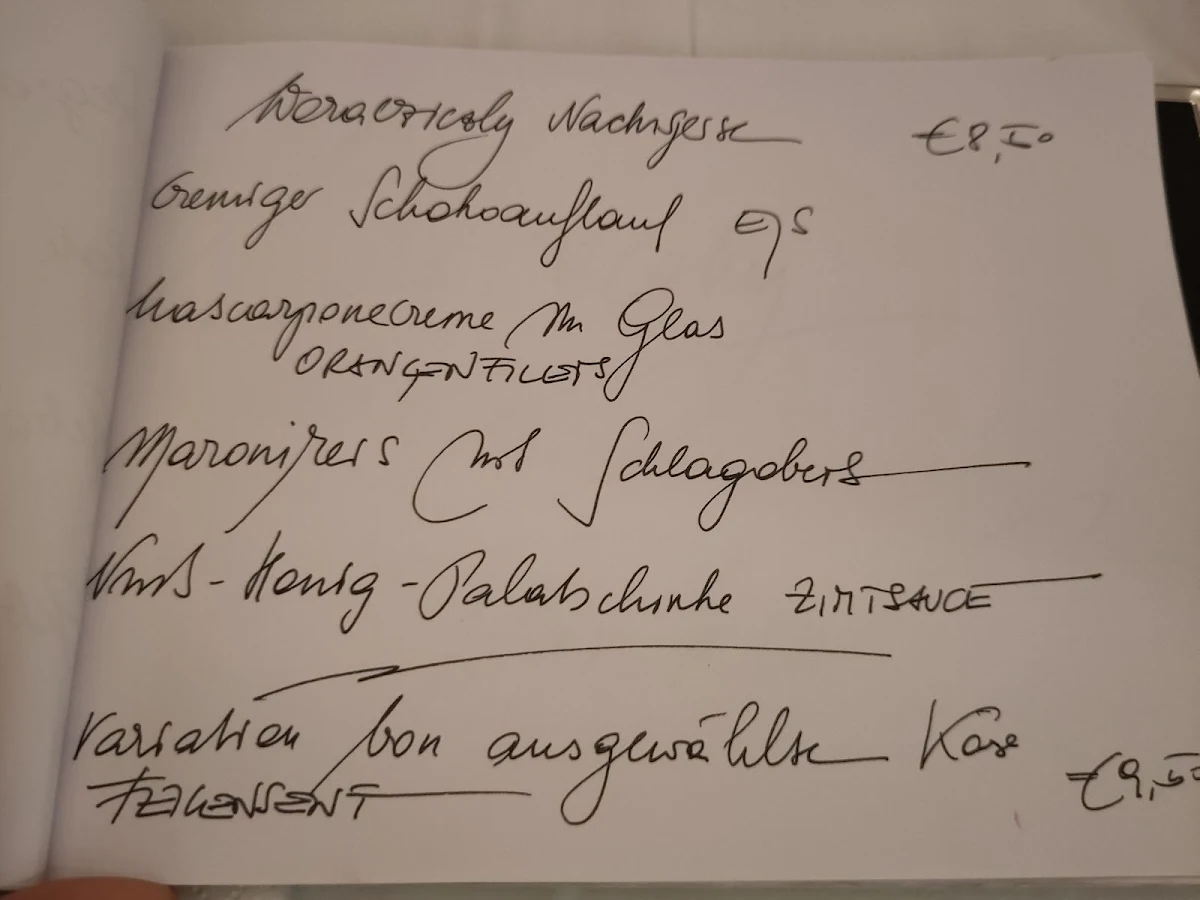 Nachspeise €8,50
Cremiger Schokoauflauf EIS
Mascarponecreme im Glas
ORANGENFILLETS
Maronireis mit Schlagobers
Nuß-Honig-Palatschinke ZIMTSAUCE
Variation von ausgewählte Käse
FEIGENSENF €9,50